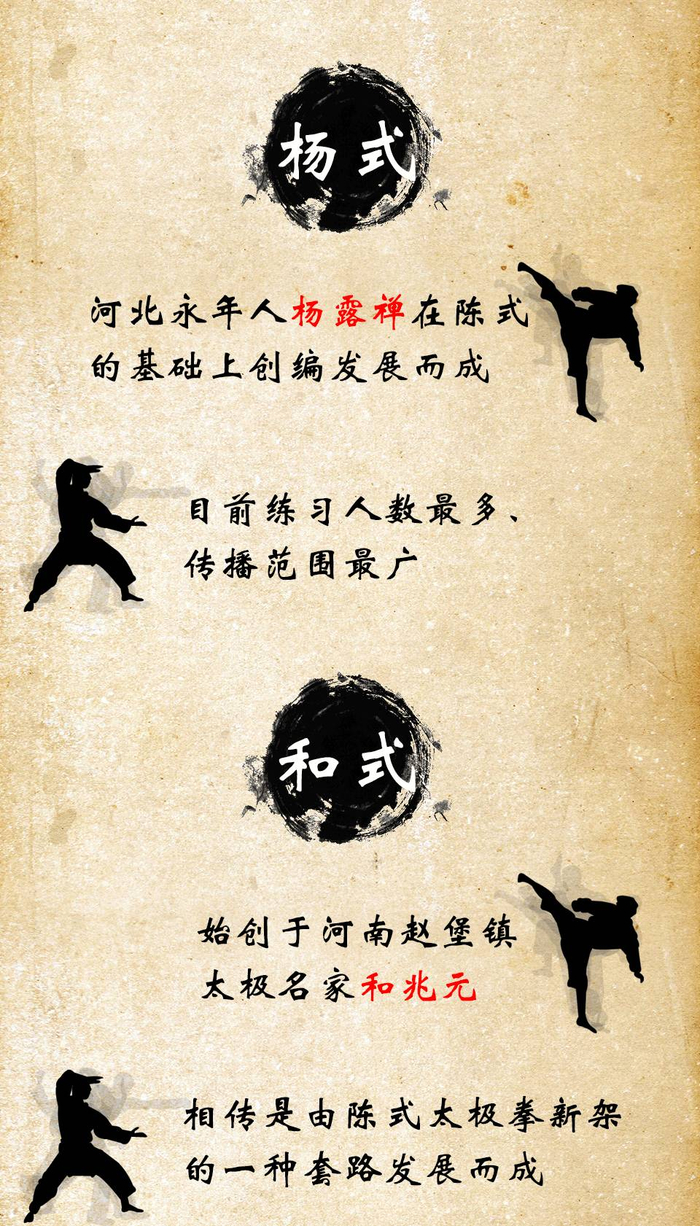 杨式
河北永年人杨露禅在陈式
的基础上创编发展而成
目前练习人数最多、
传播范围最广
和式
始创于河南赵堡镇
太极名家和兆元
相传是由陈式太极拳新架
的一种套路发展而成